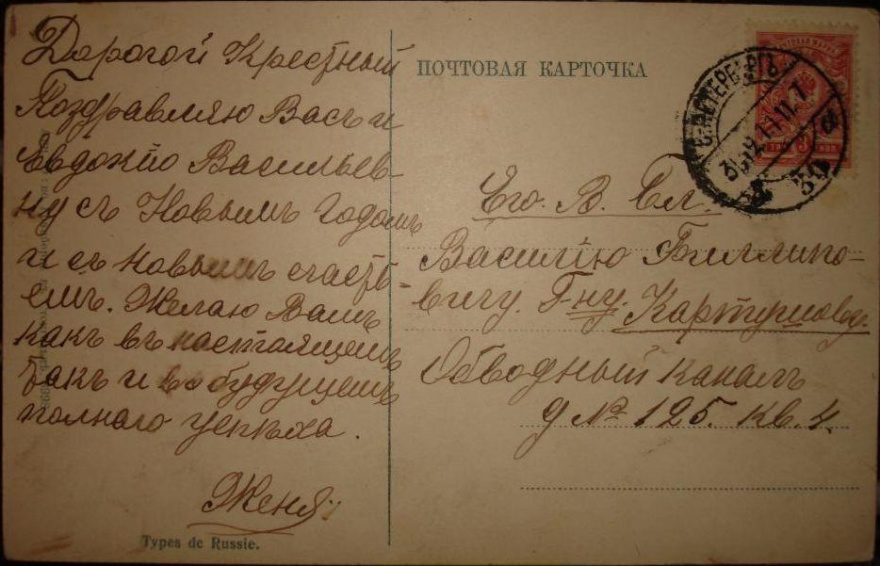 Дорогой Крестный
Поздравляю Васъ и
Евдокію Васильев-
ну съ Новымъ Годомъ
и съ новымъ счасть-
емъ. Желаю Вамъ
какъ въ настоящемъ
такъ и въ будущемъ
полнаго успѣха.
Женя
Types de Russie.
ПОЧТОВАЯ КАРТОЧКА
С.ПЕТЕРБУРГЪ
Его. В. Бл.
Василію Филлипо-
вичу. Г-ну.
Обводный каналъ
д № 125. кв. 4.